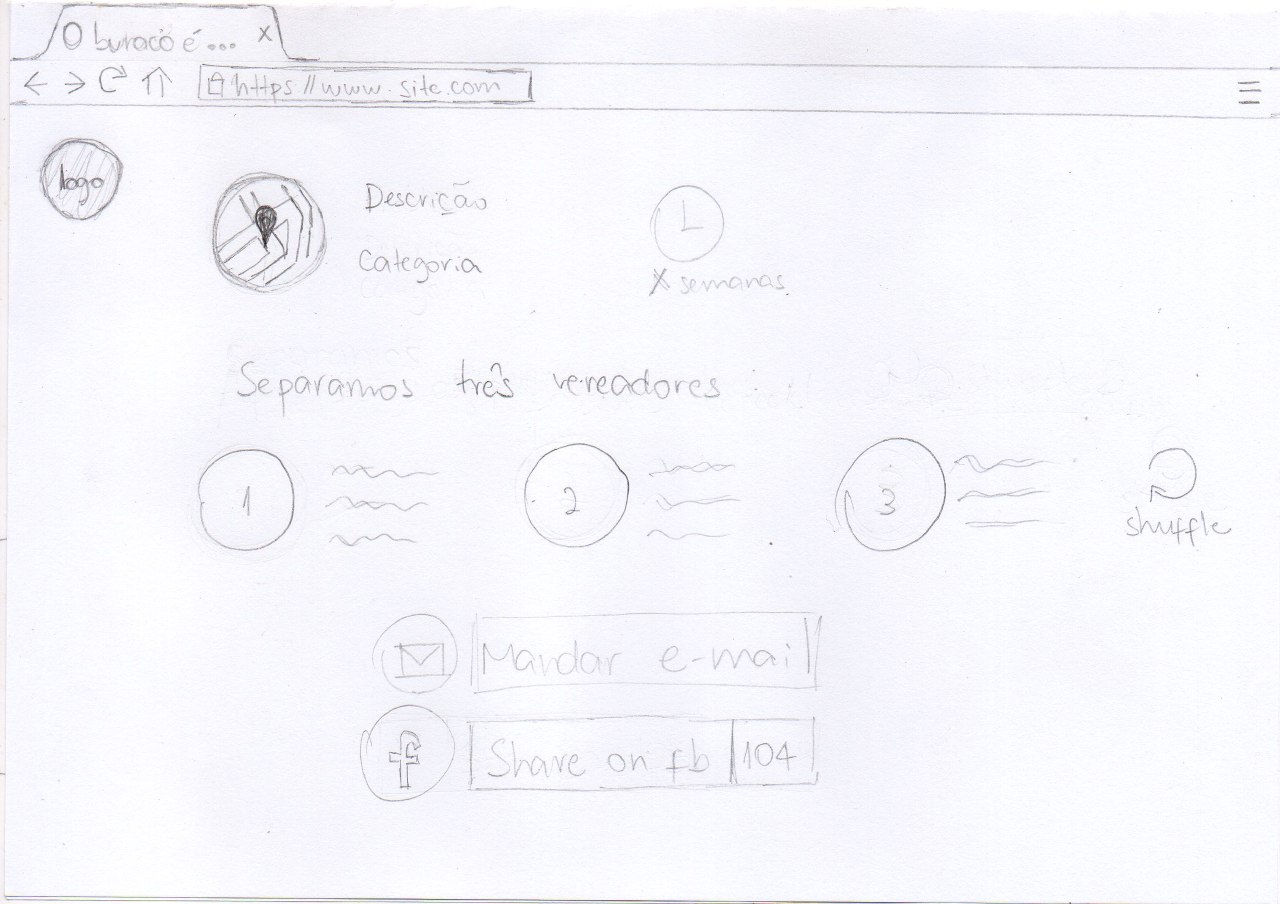 O buraco é ... X
https//www.site.com
logo
Descrição
Categoria
X semanas
Separamos três vereadores
1
2
3
shuffle
Mandar e-mail
f
Share on fb 104